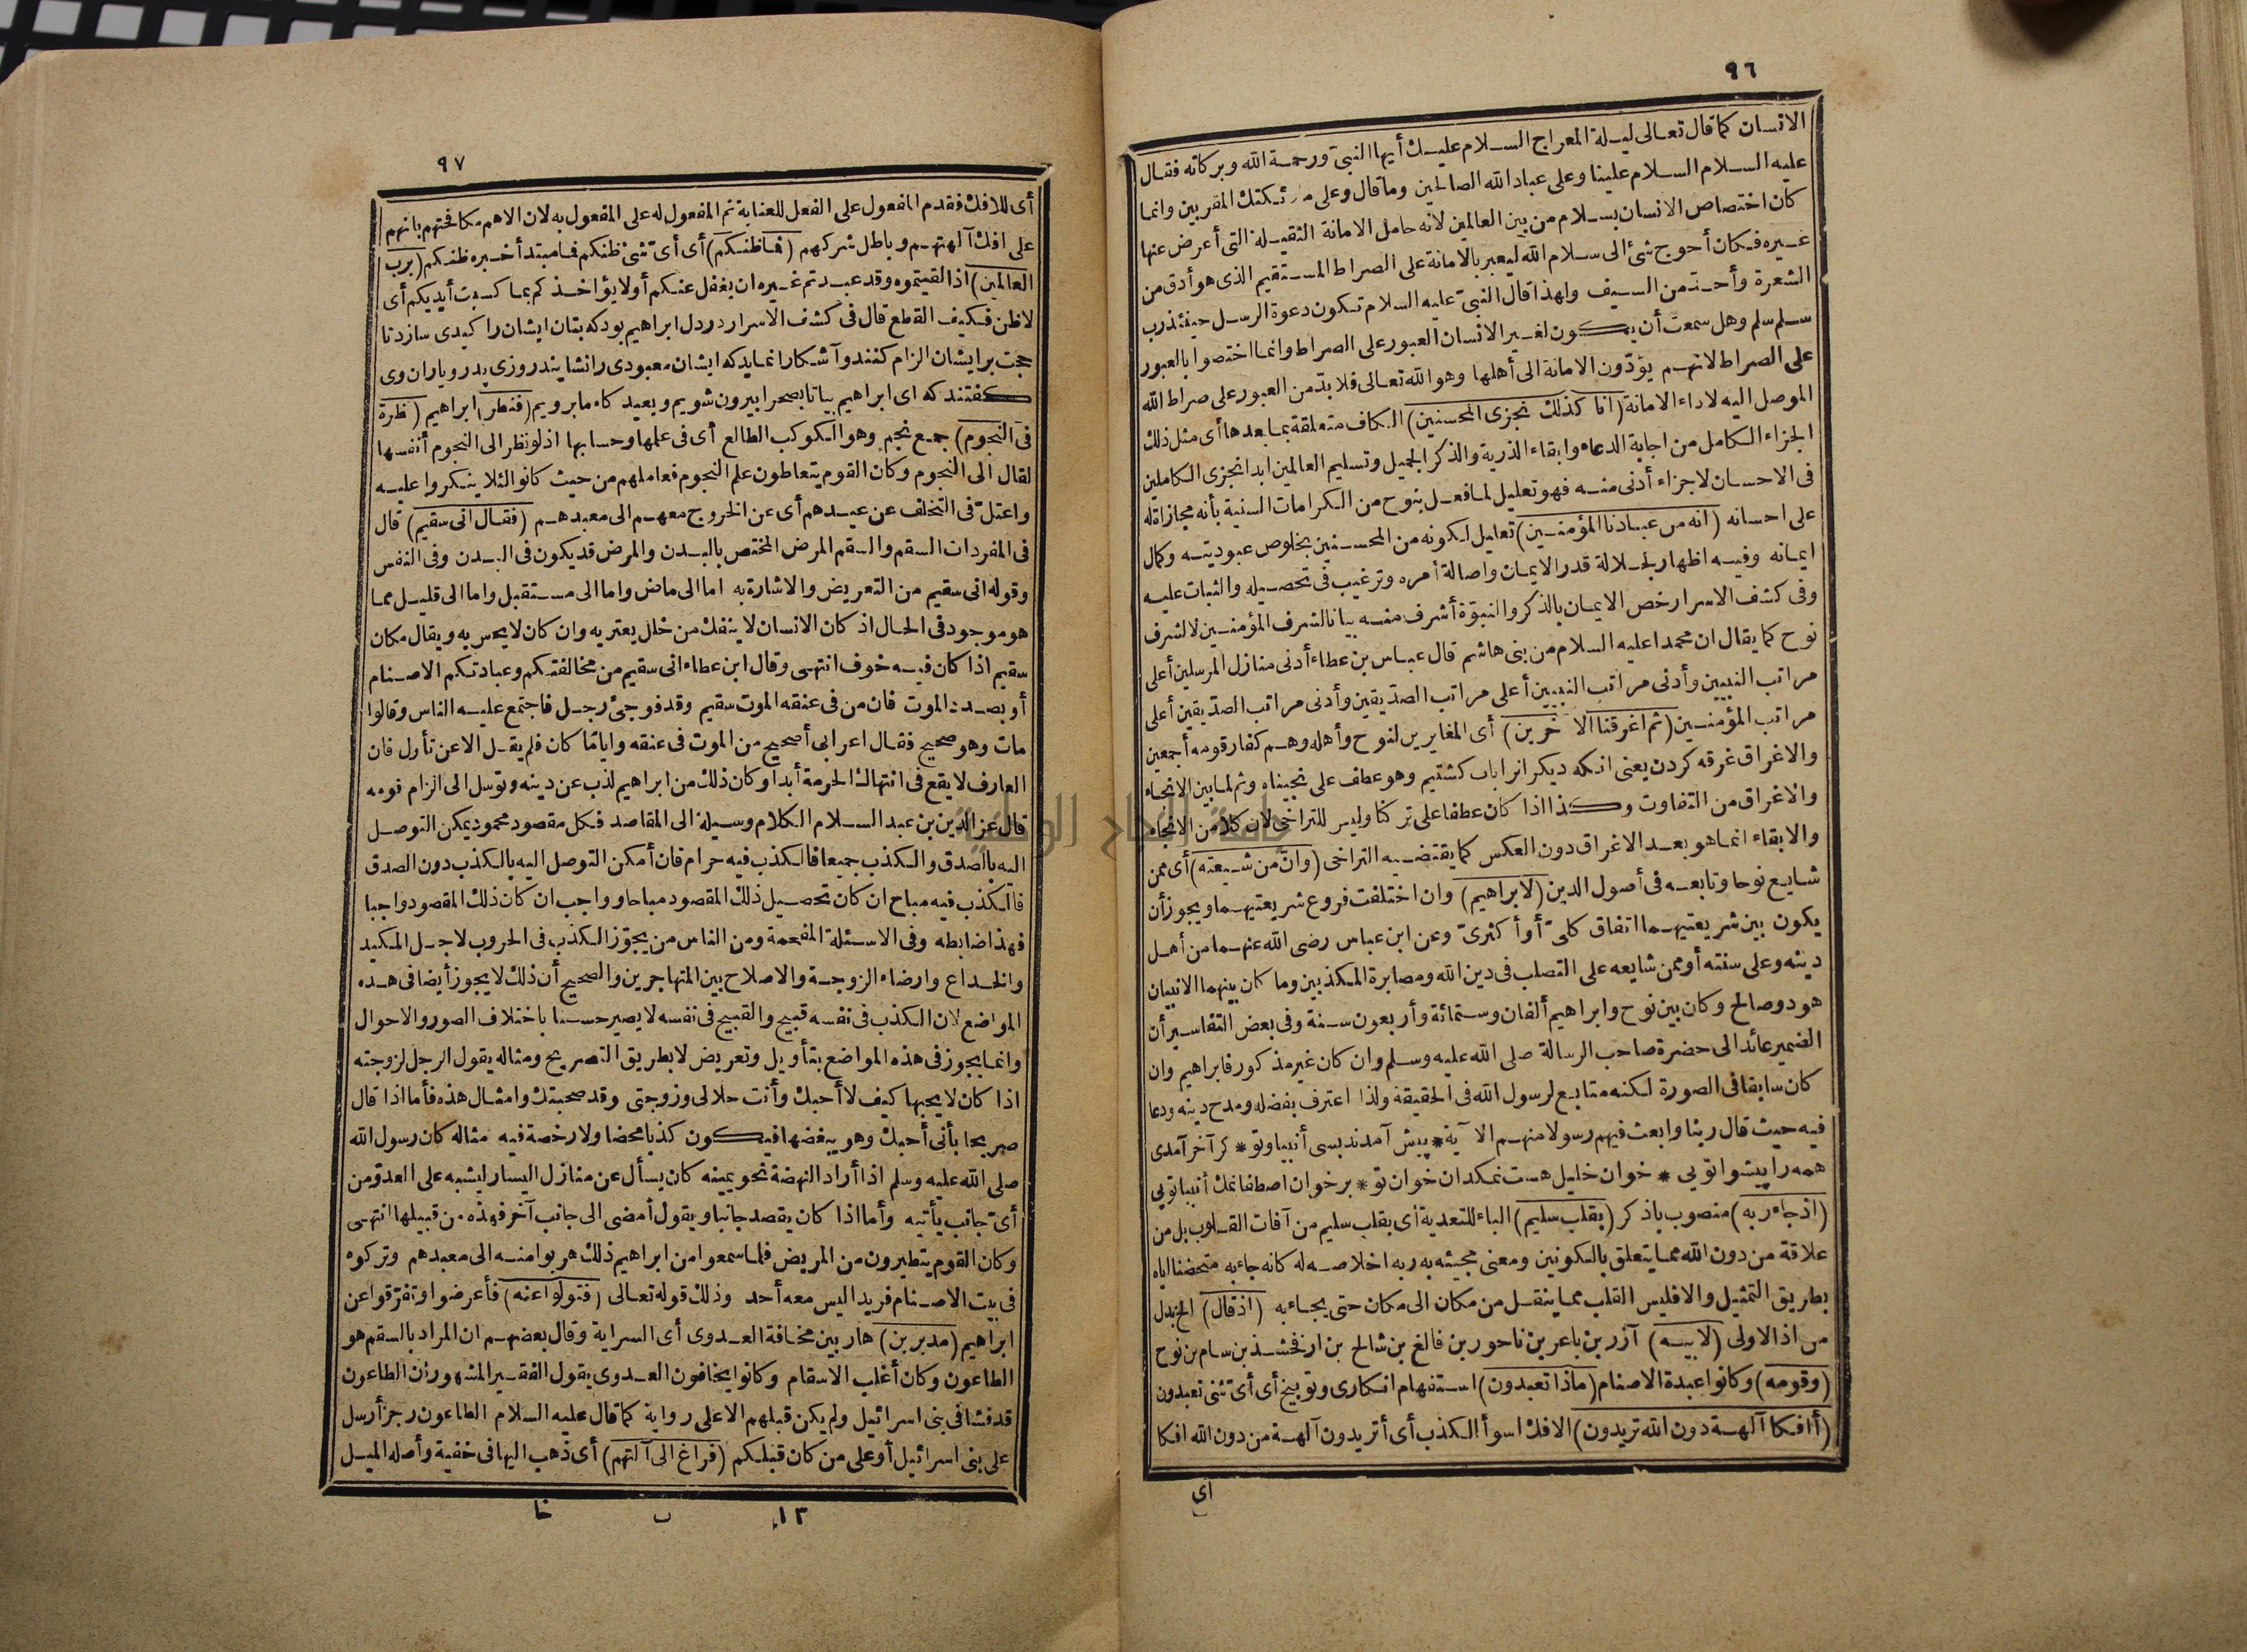 ٩٦
الانسان كما قال تعالى ليلة المعراج السلام عليك أيها النبىّ ورحمة الله وبركاته فقال
عليه السلام السلام علينا وعلى عباد الله الصالحين وما قال وعلى ملائكتك المقربين وانما
كان اختصاص الانسان بسلام من بين العالمين لانه حامل الامانة الثقيلة التى أعرض عنها
غيره فكان أحوج شئ الى سلام الله ليعبر بالامانة على الصراط المستقيم الذى هو أدق من
الشعرة وأحدّ من السيف ولهذا قال النبىّ عليه السلام تكون دعوة الرسل حينئذ رب
سلم سلم وهل سمعت أن يكون لغير الانسان العبور على الصراط وانما اختصوا بالعبور
على الصراط لانهم يؤدّون الامانة الى أهلها وهو الله تعالى فلا بدّ من العبور على صراط الله
الموصل اليه لاداء الامانة (انا كذلك نجزى المحسنين) الكاف متعلقة بما بعدها أى مثل ذلك
الجزاء الكامل من اجابة الدعاء وابقاء الذرية والذكر الجميل وتسليم العالمين ابدا نجزى الكاملين
فى الاحسان لا جزاء أدنى منه فهو تعليل لما فعل بنوح من الكرامات السنية بأنه مجازاة له
على احسانه (انه من عبادنا المؤمنين) تعليل لكونه من المحسنين بخلوص عبوديته وكمال
ايمانه وفيه اظهار لجلالة قدر الايمان واصالة أمره وترغيب فى تحصيله والثبات عليه
وفى كشف الاسرار خص الايمان بالذكر والنبوّة أشرف منه بيانا لشرف المؤمنين لا لشرف
نوح كما يقال ان محمدا عليه السلام من بنى هاشم قال عباس بن عطاء أدنى منازل المرسلين أعلى
مراتب النبيين وأدنى مراتب النبيين أعلى مراتب الصدّيقين وأدنى مراتب الصدّيقين أعلى
مراتب المؤمنين (ثم اغرقنا الآخرين) أى المغايرين لنوح وأهله وهم كفار قومه أجمعين
والاغراق غرقه كردن يعنى انكه ديكرانرا باب كشتيم وهو عطف على نجيناه وثم لما بين الانجاء
والاغراق من التفاوت وكذا اذا كان عطفا على تركنا وليس للتراخى لان كلا من الانجاء
والابقاء انما هو بعد الاغراق دون العكس كما يقتضيه التراخى (وانّ من شيعته) أى ممن
شايع نوحا وتابعه فى أصول الدين (لابراهيم) وان اختلفت فروع شريعتيهما ويجوز أن
يكون بين شريعتيهما اتفاق كلىّ أو أكثرىّ وعن ابن عباس رضى الله عنهما من أهل
دينه وعلى سنته أو ممن شايعه على التصلب فى دين الله ومصابرة المكذبين وما كان بينهما الا نبيان
هود وصالح وكان بين نوح وابراهيم ألفان وستمائة وأربعون سنة وفى بعض التفاسير أن
الضمير عائد الى حضرة صاحب الرسالة صلى الله عليه وسلم وان كان غير مذكور فابراهيم وان
كان سابقا فى الصورة لكنه متابع لرسول الله فى الحقيقة ولذا اعترف بفضله ومدح دينه ودعا
فيه حيث قال ربنا وابعث فيهم رسولا منهم الآية * پيش آمدند بسى أنبيا وتو * كر آخر آمدى
همه را پيشوا توبى * خوان خليل هست نمكدان خوان تو * بر خوان اصطفا نمك أنبيا توبى
(اذ جاء ربه) منصوب باذكر (بقلب سليم) الباء للتعدية أى بقلب سليم من آفات القلوب بل من
علاقة من دون الله مما يتعلق بالكونين ومعنى مجيئه به ربه اخلاصه له كانه جاء به متحفنا اياه
بطريق التمثيل والا فليس القلب مما ينقل من مكان الى مكان حتى يجاء به (اذ قال) الخ بدل
من اذ الاولى (لابيه) آزر بن باعر بن ناحور بن فالغ بن شالح بن ارفخشذ بن سام بن نوح
(وقومه) وكانوا عبدة الاصنام (ماذا تعبدون) استفهام انكارى وتوبيخ أى أىّ شئ تعبدون
(أافكا آلهة دون الله تريدون) الافك اسوأ الكذب أى أتريدون آلهة من دون الله افكا
اى
٩٧
أى للافك فقدم المفعول على الفعل للعناية ثم المفعول له على المفعول به لان الاهم مكافحتهم بانهم
على افك آلهتهم وباطل شركهم (فما ظنكم) أى أىّ شئ ظنكم فما مبتدأ خبره ظنكم (برب
العالمين) اذا لقيتموه وقد عبدتم غيره ان يغفل عنكم أو لا يؤاخذكم بما كسبت أيديكم أى
لا ظن فكيف القطع قال فى كشف الاسرار در دل ابراهيم بود كه بتان ايشان را كيدى سازد تا
حجت بر ايشان الزام كنند وآشكارا نمايد كه ايشان معبودى را نشايند روزى پدر وياران وى
كفتند كه اى ابراهيم بيا تا بصحرا بيرون شويم وبعيد كاه ما برويم (فنظر) ابراهيم (نظرة
فى النجوم) جمع نجم وهو الكوكب الطالع أى فى علمها وحسابها اذ لو نظر الى النجوم أنفسها
لقال الى النجوم وكان القوم يتعاطون علم النجوم فعاملهم من حيث كانوا لئلا ينكروا عليه
واعتلّ فى التخلف عن عيدهم أى عن الخروج معهم الى معبدهم (فقال انى سقيم) قال
فى المفردات السقم والسقم المرض المختص بالبدن والمرض قد يكون فى البدن وفى النفس
وقوله انى سقيم من التعريض والاشارة به اما الى ماض واما الى مستقبل واما الى قليل مما
هو موجود فى الحال اذ كان الانسان لا ينفك من خلل يعتريه وان كان لا يحس به ويقال مكان
سقيم اذا كان فيه خوف انتهى وقال ابن عطاء انى سقيم من مخالفتكم وعبادتكم الاصنام
أو بصدد الموت فان من فى عنقه الموت سقيم وقد فوجئ رجل فاجتمع عليه الناس وقالوا
مات وهو صحيح فقال اعرابى أصحيح من الموت فى عنقه وايامّا كان فلم يقل الا عن تأول فان
العارف لا يقع فى انتهاك الحرمة أبدا وكان ذلك من ابراهيم لذب عن دينه وتوسل الى الزام قومه
قال عز الدين بن عبد السلام الكلام وسيلة الى المقاصد فكل مقصود محمود يمكن التوصل
اليه بالصدق والكذب جميعا فالكذب فيه حرام فان أمكن التوصل اليه بالكذب دون الصدق
فالكذب فيه مباح ان كان تحصيل ذلك المقصود مباحا وواجب ان كان ذلك المقصود واجبا
فهذا ضابطه وفى الاسئلة المفحمة ومن الناس من يجوّز الكذب فى الحروب لاجل المكيد
والخداع وارضاء الزوجة والاصلاح بين المتهاجرين والصحيح أن ذلك لا يجوز أيضا فى هذه
المواضع لان الكذب فى نفسه قبيح والقبيح فى نفسه لا يصير حسنا باختلاف الصور والاحوال
وانما يجوز فى هذه المواضع بتأويل وتعريض لا بطريق التصريح ومثاله يقول الرجل لزوجته
اذا كان لا يحبها كيف لا أحبك وأنت حلالى وزوجتى وقد صحبتك وامثال هذه فأما اذا قال
صريحا بأنى أحبك وهو يبغضها فيكون كذبا محضا ولا رخصة فيه مثاله كان رسول الله
صلى الله عليه وسلم اذا أراد النهضة نحو يمينه كان يسأل عن منازل اليسار ليشبه على العدو من
أىّ جانب يأتيه وأما اذا كان يقصد جانبا ويقول أمضى الى جانب آخر فهذه من قبيلها انتهى
وكان القوم يتطيرون من المريض فلما سمعوا من ابراهيم ذلك هربوا منه الى معبدهم وتركوه
فى بيت الاصنام فريدا ليس معه أحد وذلك قوله تعالى (فتولوا عنه) فأعرضوا وتفرّقوا عن
ابراهيم (مدبرين) هاربين مخافة العدوى أى السراية وقال بعضهم ان المراد بالسقم هو
الطاعون وكان أغلب الاسقام وكانوا يخافون العدوى يقول الفقير المشهور ان الطاعون
قد فشا فى بنى اسرائيل ولم يكن قبلهم الا على رواية كما قال عليه السلام الطاعون رجز أرسل
على بنى اسرائيل أو على من كان قبلكم (فراغ الى آلهتهم) أى ذهب اليها فى خفية وأصله الميل
١٣ ب خا